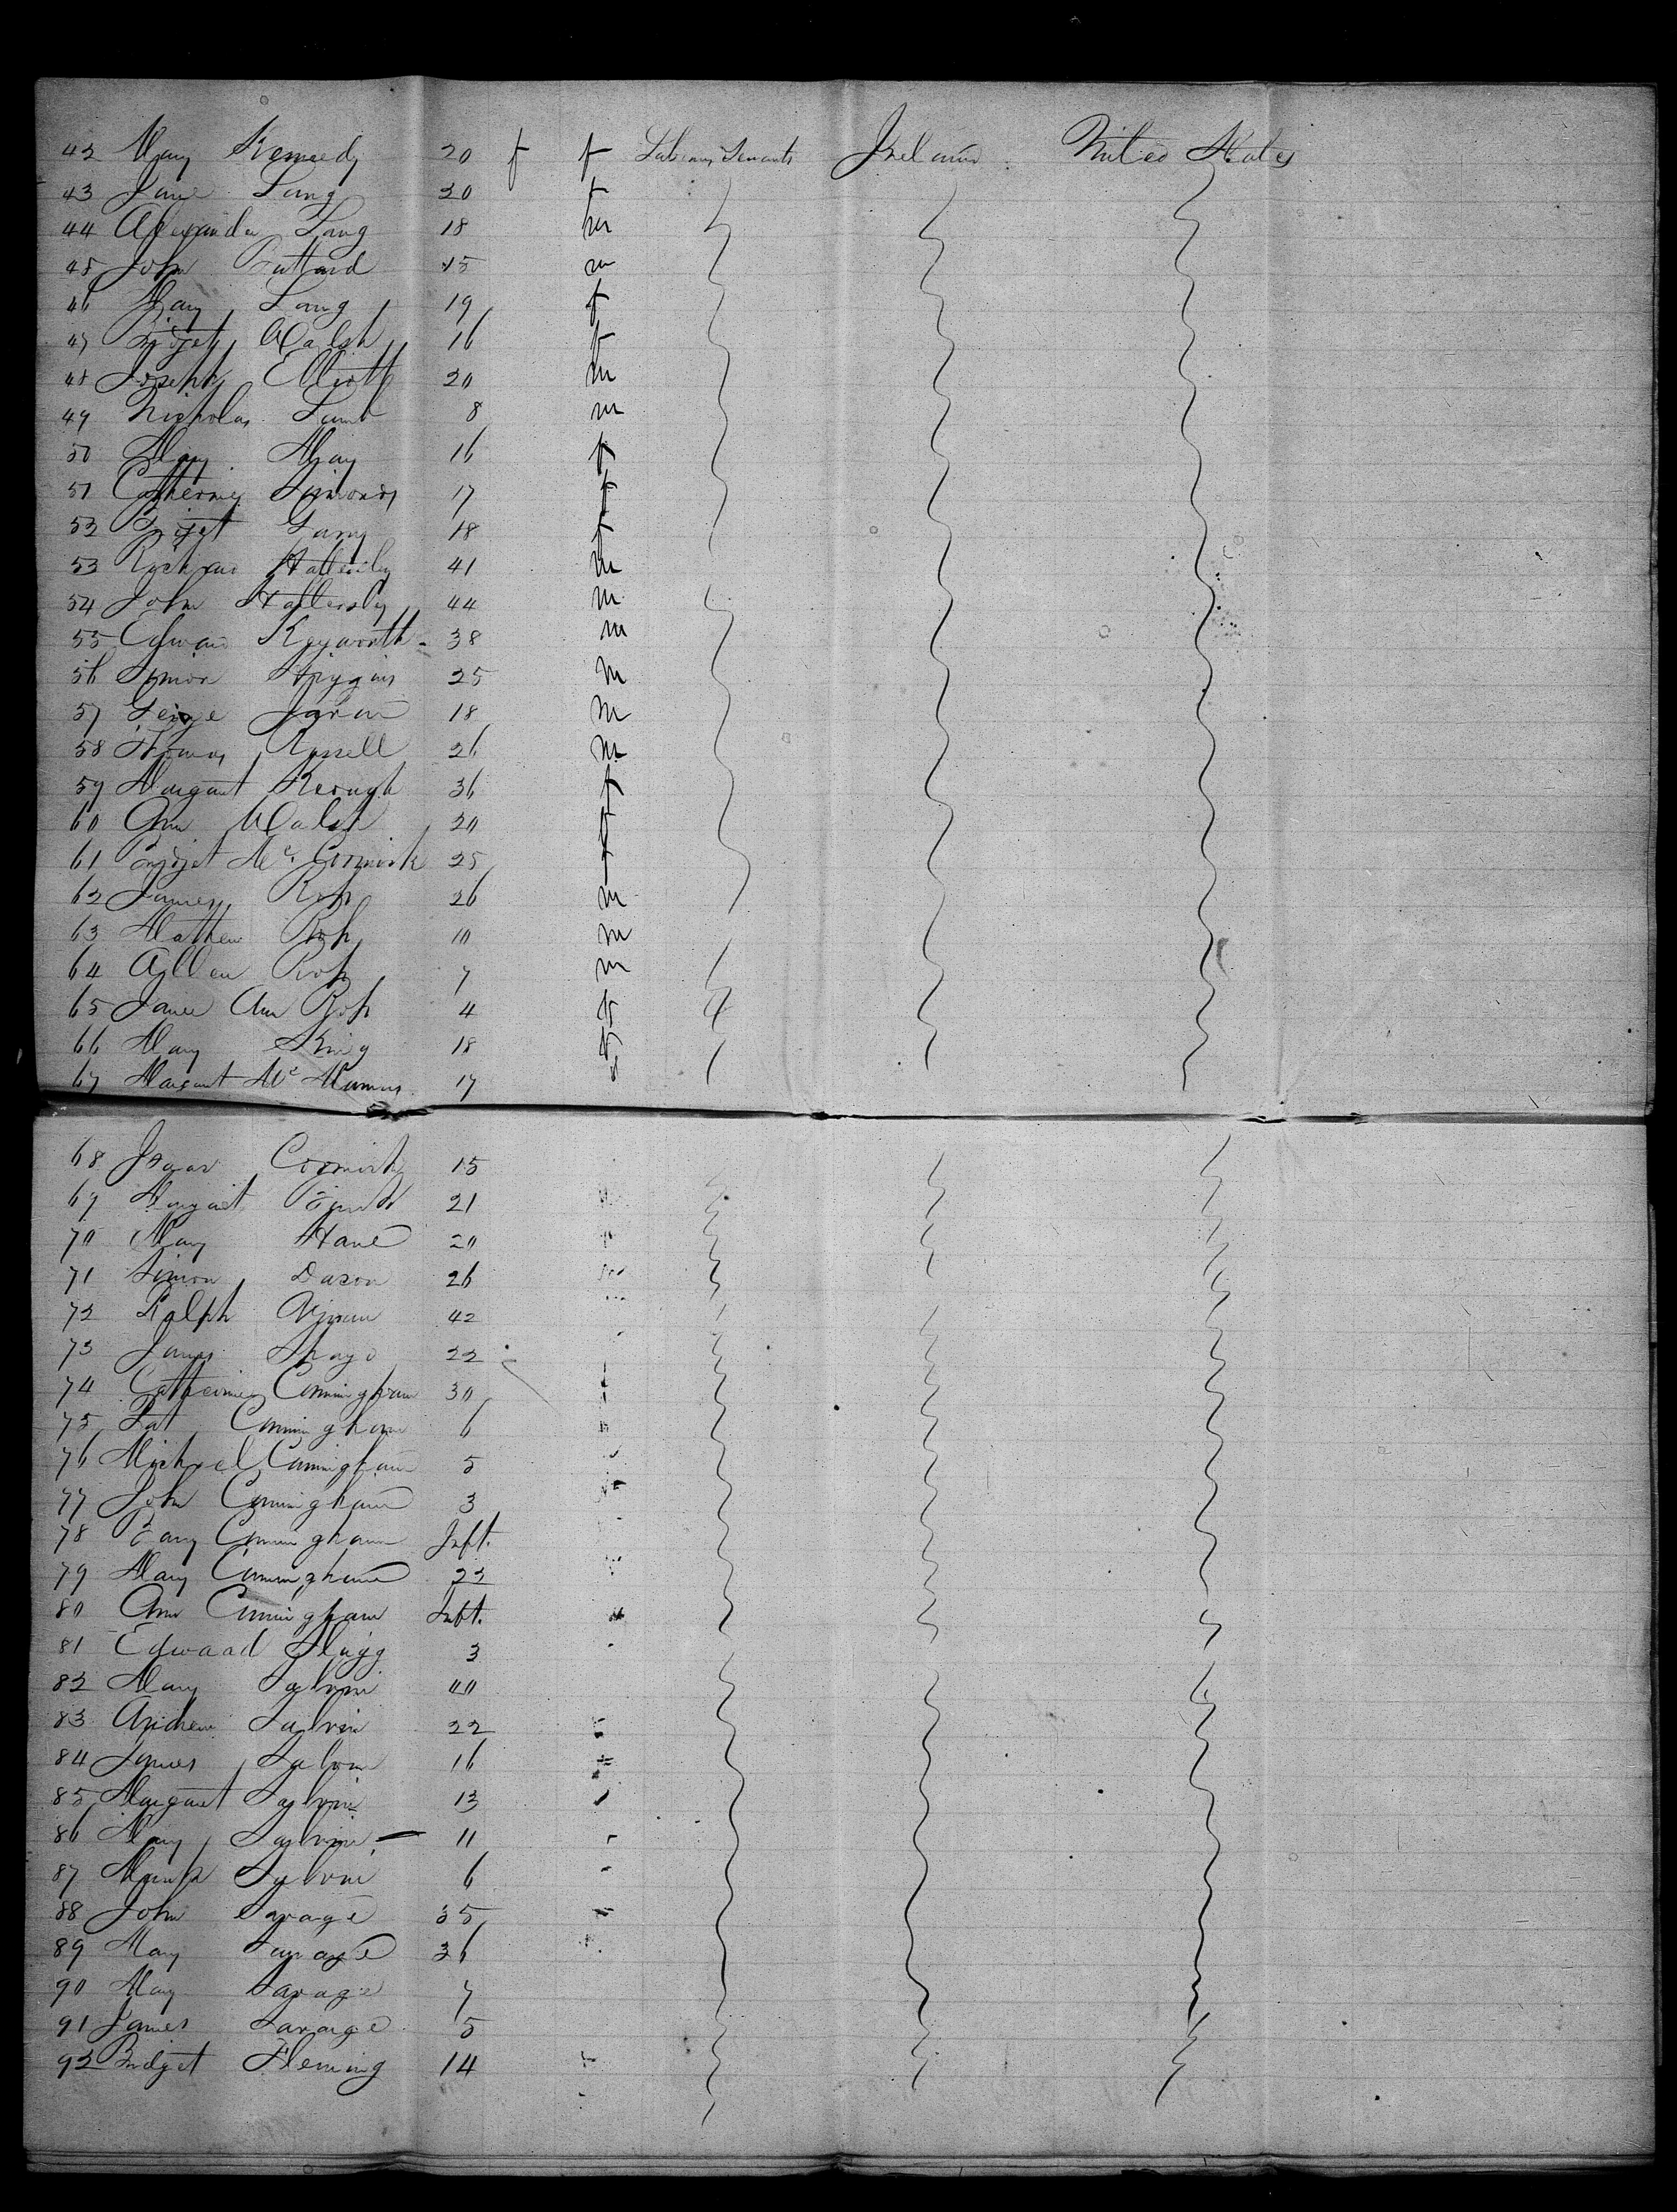 42 Mary Kennedy 20 f f Laborers Servants Ireland United States
43 Jane Lang 20 f
44 Alexander Lang 18 m
45 John 15 m
46 Mary Lang 19 f
47 Bridget Walsh 16 f
48 Joseph Elliott 20 m
49 Nicholas Lamb 8 m
50 Mary May 16 f
51 Catherine 17 f
52 18 f
53 Hattersley 41 m
54 John Hattersley 44 m
55 Edward Keyworth 38 m
56 Simon Higgins 25 m
57 George 18 m
58 Thomas Russell 26 m
59 Margaret Keough 36 f
60 Ann Walsh 20 f
61 Bridget Mc Cormick 25 f
62 James Roh 26 m
63 Mathew Roh 10 m
64 Roh 7 m
65 Jane Ann Roh 4 f
66 Mary King 18 f
67 Margaret Mc Manus 17
68 15
69 Margaret 21
70 Mary Hane 20
71 Simon Dason 26
72 Ralph 42
73 James 22
74 Catherine Cunningham 30
75 Pat Cunningham 6
76 Michael Cunningham 5
77 John Cunningham 3
78 Cunningham Inft.
79 Mary Cunningham 22
80 Ann Cunningham Inft.
81 Edward 3
82 Mary Galvin 40
83 Andrew Galvin 22
84 James Galvin 16
85 Margaret Galvin 13
86 Mary Galvin 11
87 Galvin 6
88 John Savage 35
89 Mary Savage 36
90 Mary Savage 7
91 James Savage 5
92 Bridget Fleming 14